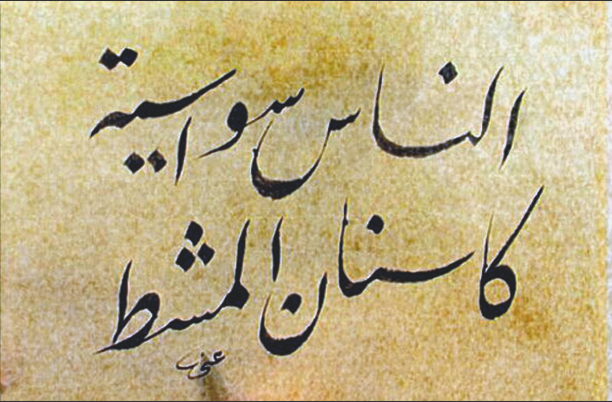 الناس سواسية
كاسنان المشط